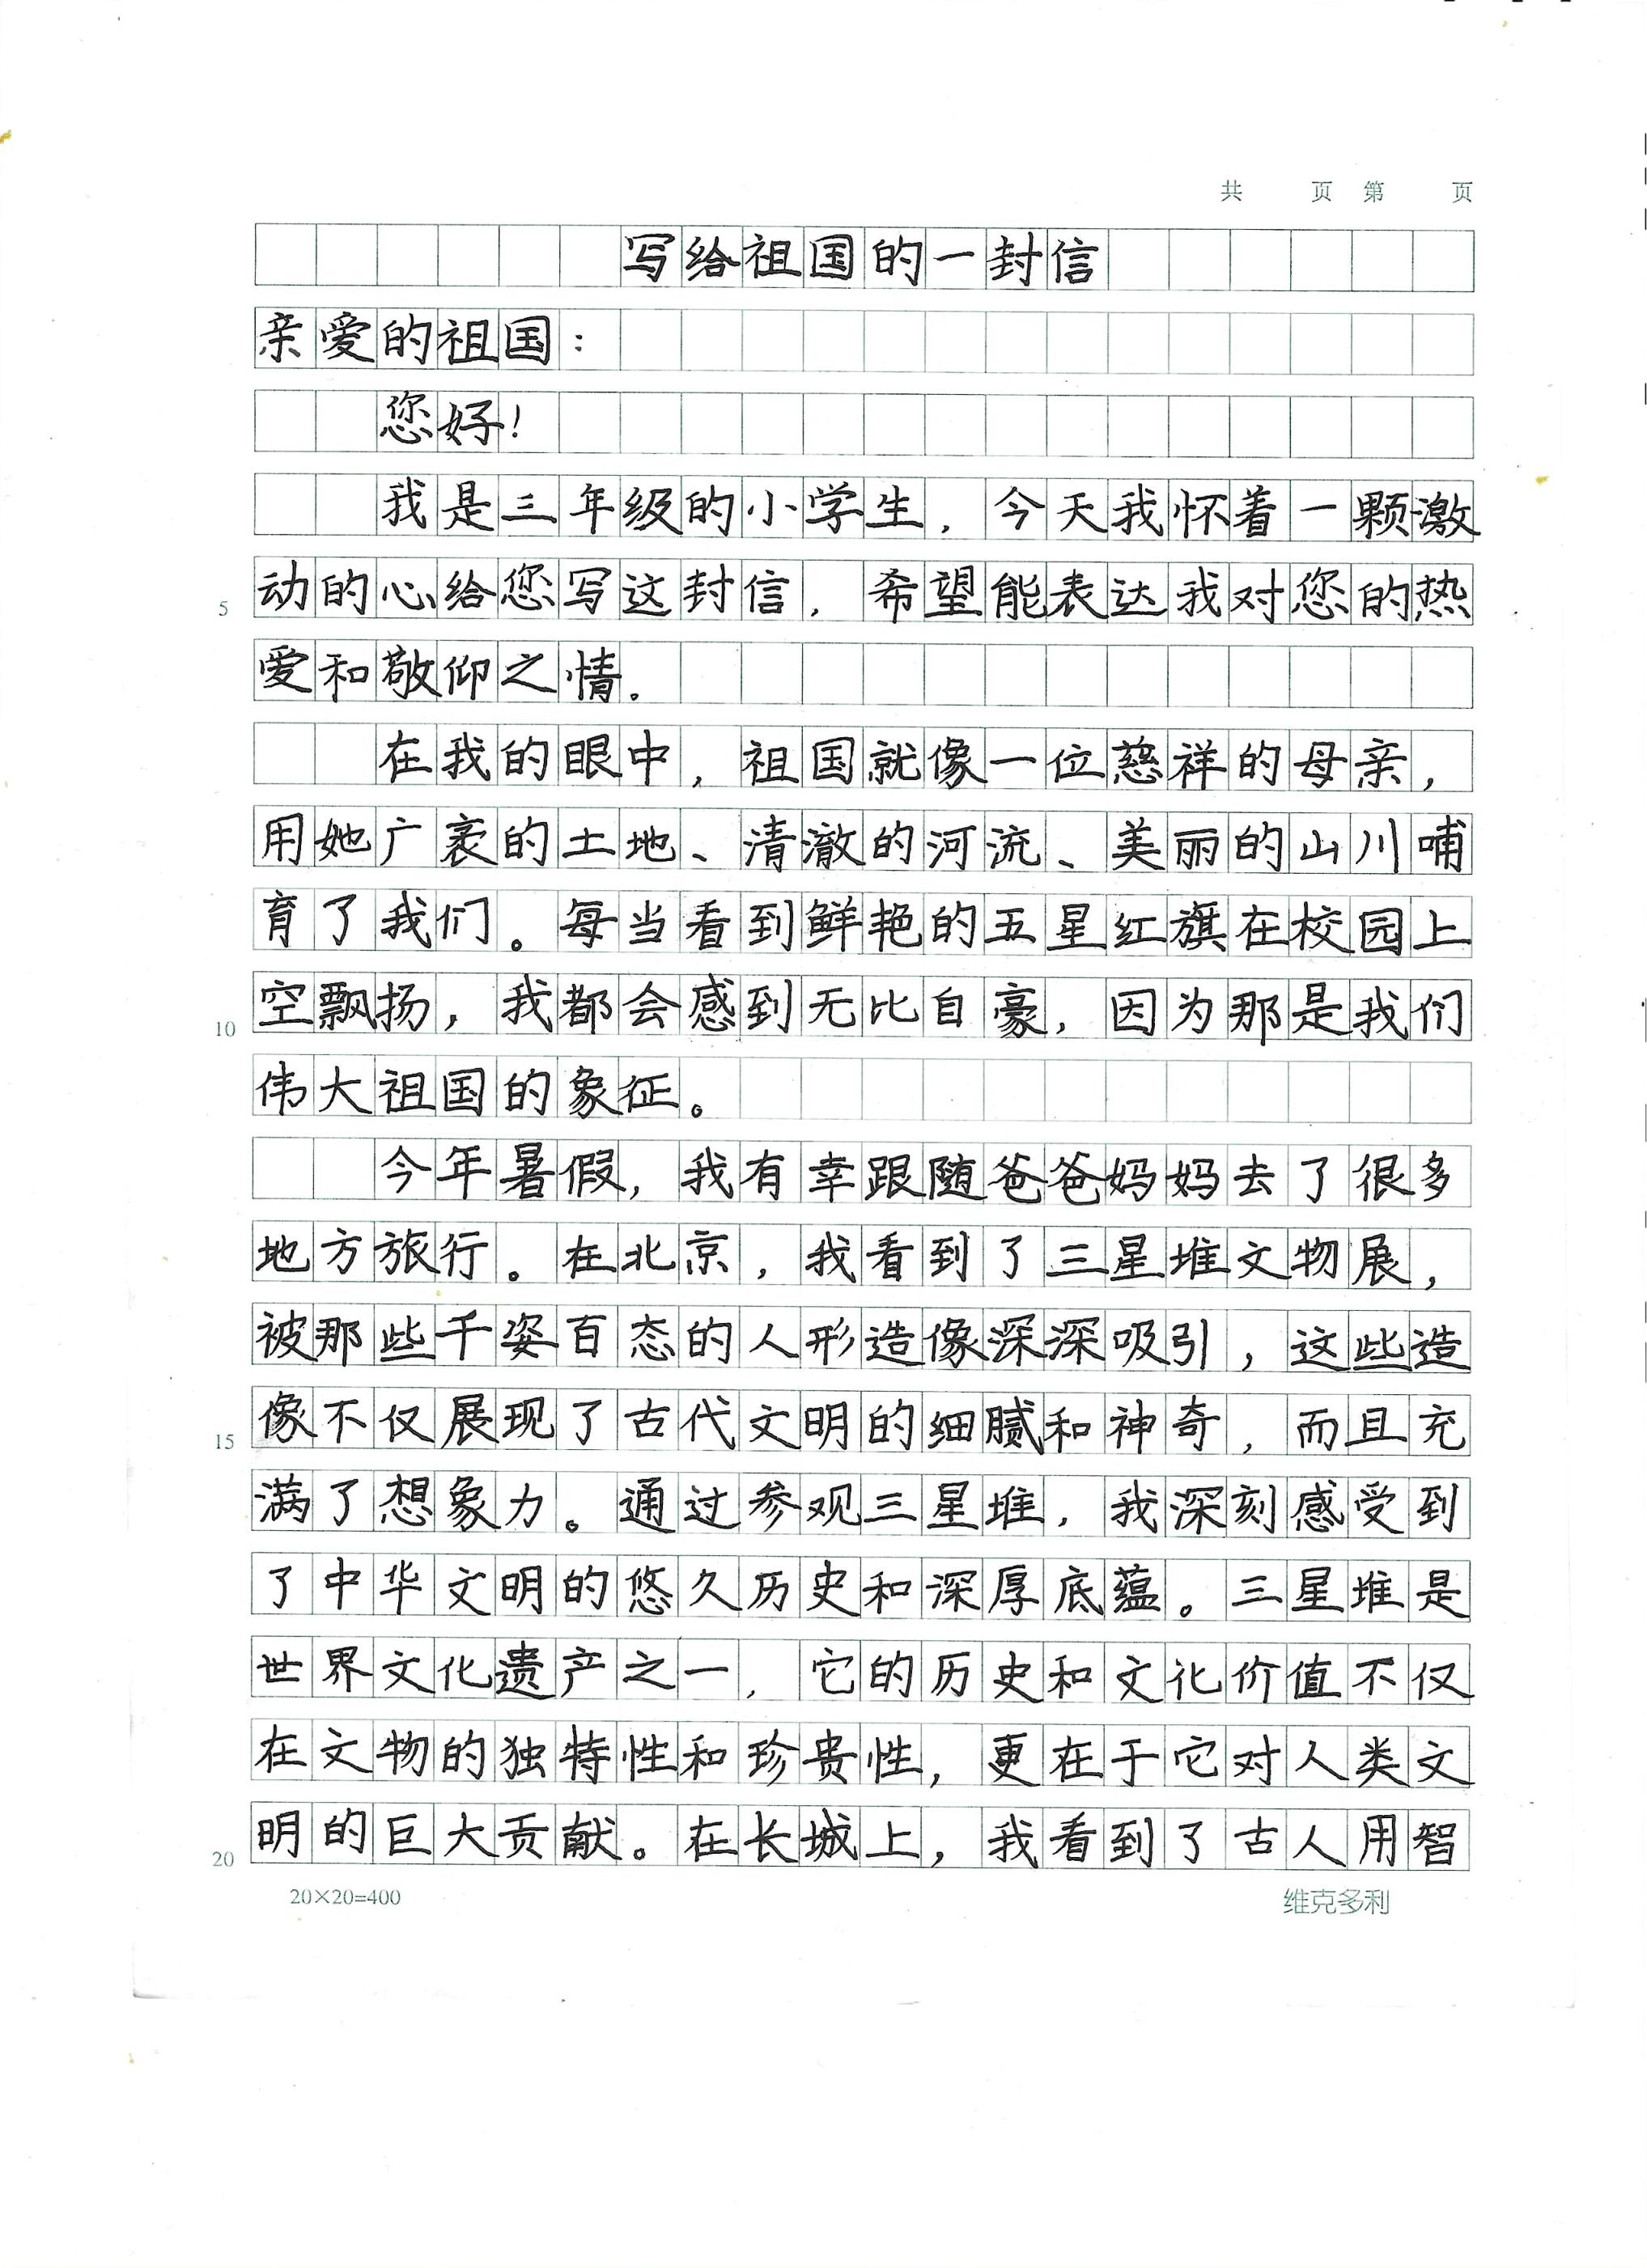 共　　页 第　　页
写给祖国的一封信
亲爱的祖国：
您好！
我是三年级的小学生，今天我怀着一颗激
动的心给您写这封信，希望能表达我对您的热
5
爱和敬仰之情。
在我的眼中，祖国就像一位慈祥的母亲，
用她广袤的土地、清澈的河流、美丽的山川哺
育了我们。每当看到鲜艳的五星红旗在校园上
空飘扬，我都会感到无比自豪，因为那是我们
10
伟大祖国的象征。
今年暑假，我有幸跟随爸爸妈妈去了很多
地方旅行。在北京，我看到了三星堆文物展，
被那些千姿百态的人形造像深深吸引，这些造
像不仅展现了古代文明的细腻和神奇，而且充
15
满了想象力。通过参观三星堆，我深刻感受到
了中华文明的悠久历史和深厚底蕴。三星堆是
世界文化遗产之一，它的历史和文化价值不仅
在文物的独特性和珍贵性，更在于它对人类文
明的巨大贡献。在长城上，我看到了古人用智
20
20×20=400
维克多利